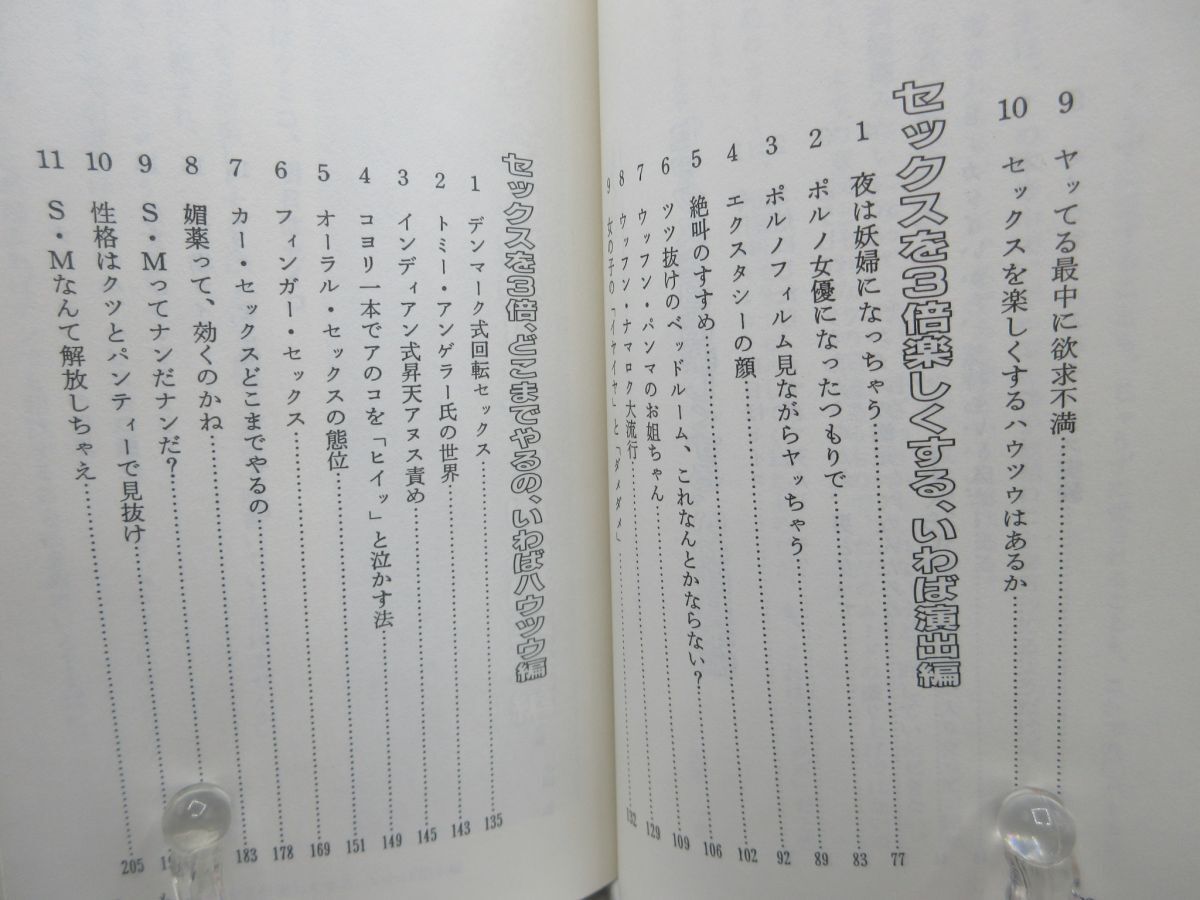 9 ヤッてる最中に欲求不満
10 セックスを楽しくするハウツウはあるか
セックスを3倍楽しくする、いわば演出編
1 夜は妖婦になっちゃう……77
2 ポルノ女優になったつもりで……83
3 ポルノフィルム見ながらヤッちゃう……89
4 エクスタシーの顔……92
5 絶叫のすすめ……102
6 ツツ抜けのベッドルーム、これなんとかならない?……106
7 ウッフン・パンマのお姐ちゃん……109
8 ウッフン・ナマロク大流行……129
9 女の子の「イヤイヤ」と「ダメダメ」……132
セックスを3倍、どこまでやるの、いわばハウツウ編
1 デンマーク式回転セックス……135
2 トミー・アンゲラー氏の世界……143
3 インディアン式昇天アヌス責め……145
4 コヨリ一本でアのコを「ヒイッ」と泣かす法……149
5 オーラル・セックスの態位……151
6 フィンガー・セックス……169
7 カー・セックスどこまでやるの……178
8 媚薬って、効くのかね……183
9 S・Mってナンだナンだ?
10 性格はクツとパンティーで見抜け
11 S・Mなんて解放しちゃえ……205